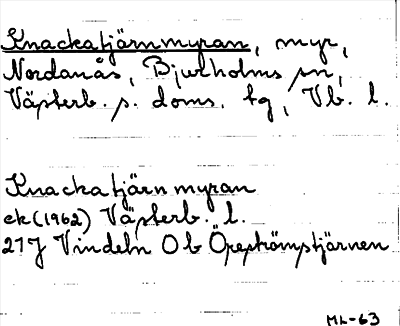 Knackatjärnmyran, myr,
Nordanås, Bjurholms sn,
Västerb. s. doms. tg, Vb. l.
Knackatjärnmyran
ek (1962) Västerb. l.
21J Vindeln 0b Öreströmstjärnen
ML-63